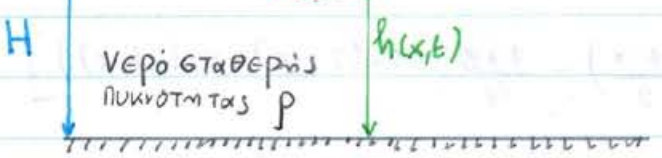 H
h(x,t)
νερό σταθερής
πυκνότητας ρ